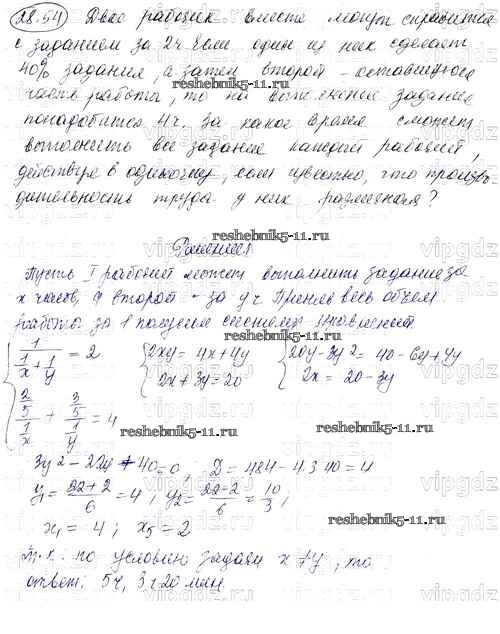 28.54) Двое рабочих вместе могут справиться
с заданием за 2ч. Если один из них сделает
40% задания, а затем второй – оставшуюся
часть работы, то на выполнение задания
понадобится 4ч. За какое время сможет
выполнить все задание каждый рабочий,
действуя в одиночку, если известно, что произво
дительность труда у них различная?
reshebnik5-11.ru
Решение
Пусть I рабочий может выполнить задание за
x часов, а второй – за y ч. Приняв весь объем
работы за 1 получим систему уравнений
{ 1/(1/x + 1/y) = 2 { 2xy = 4x + 4y { 20y - 3y² = 40 - 6y + 4y
{ (2/5)/(1/x) + (3/5)/(1/y) = 4 2x + 3y = 20 2x = 20 - 3y
reshebnik5-11.ru
3y² - 22y + 40 = 0; D = 484 - 4·3·40 = 4
y₁ = (22+2)/6 = 4; y₂ = (22-2)/6 = 10/3;
x₁ = 4; x₅ = 2
Т.к. по условию задачи x ≠ y, то
ответ: 5ч, 3ч 20 мин